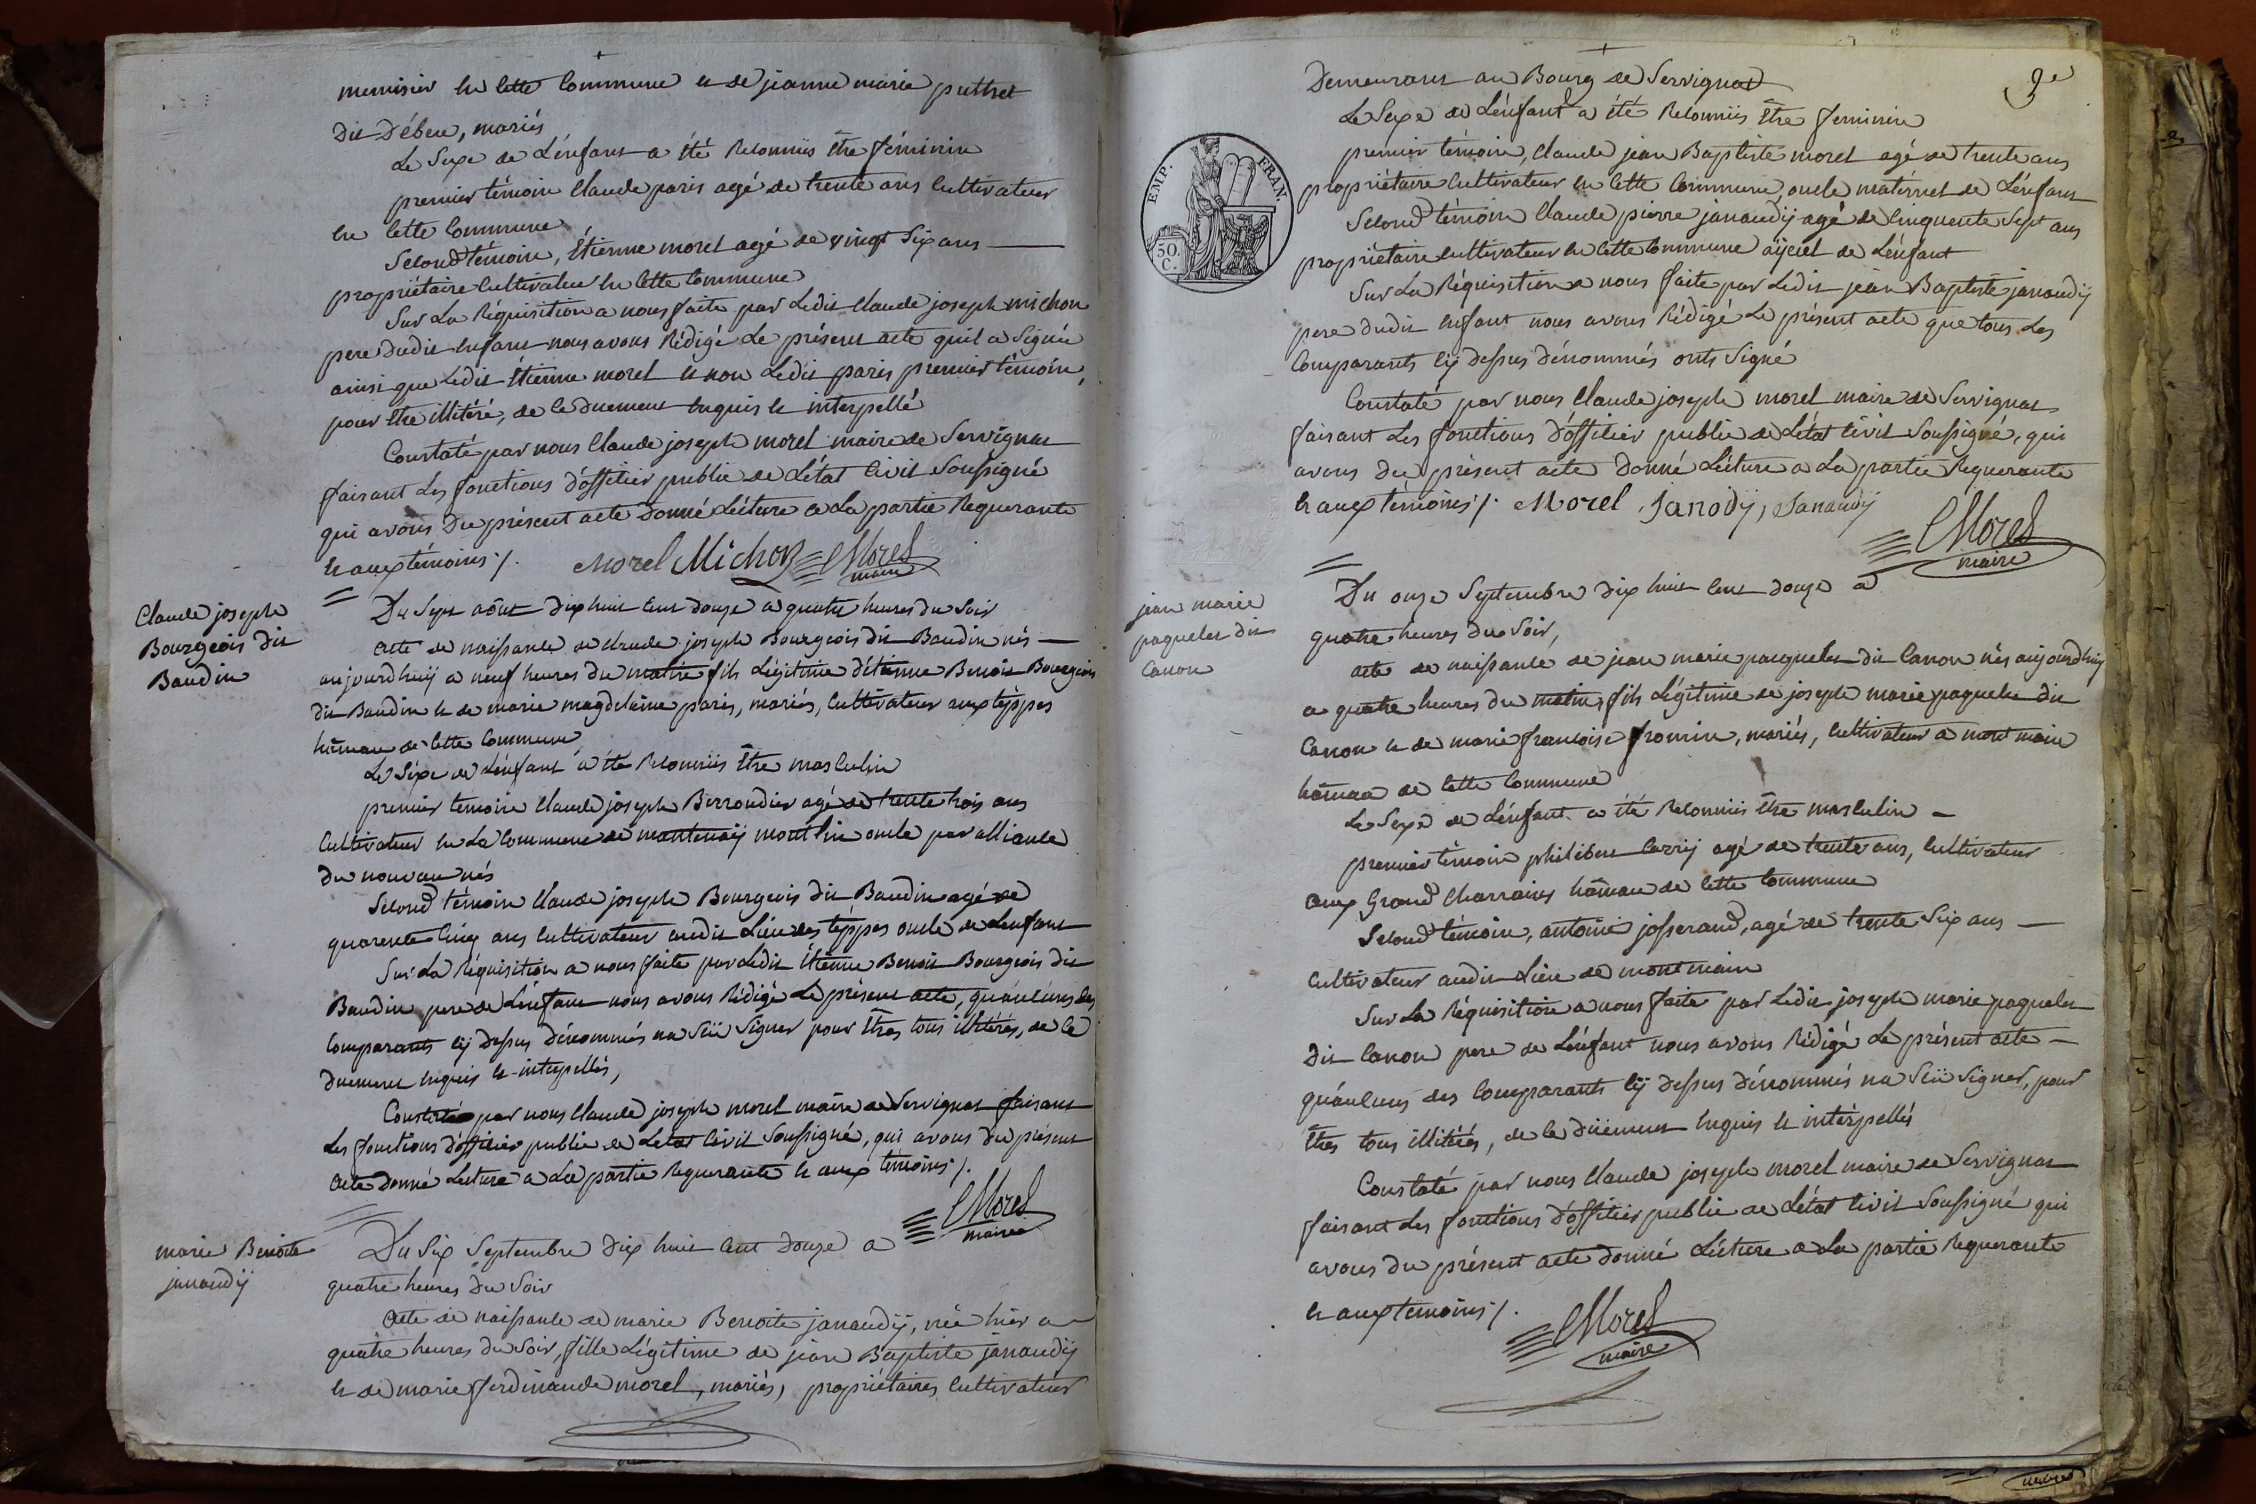 menuisier en cette Commune et de jeanne marie puthet
dit D'ébene, mariés
Le Sexe de L'énfant a été Reconnüs Être féminin
premier témoin Claude paris agé de trente ans Cultivateur
en Cette Commune
Second témoin, Étienne morel agé de vingt Six ans
propriétaire Cultivateur en Cette Commune
Sur La Réquisition a nous faite par Ledit Claude joseph michon
pere dudit enfant nous avons Rédigé Le présent acte quil a Signé
ainsi que Ledit Étienne morel et non Ledit paris premier témoin,
pour Être illitéré, de Ce duement enquis et interpellé
Constaté par nous Claude joseph morel maire de Servignat
faisant Les fonctions d'officier public de L'état Civil Soussigné
qui avons du présent acte Donné Lécture a La partie Requerante
et aux témoins /.
Morel Michon Morel
maire
Claude joseph
Bourgeois dit
Baudin
Du Sept août dix huit cent douze a quatre heures du Soir
acte de naissance de claude joseph Bourgeois dit Baudin nés
aujourd'huij a neuf heures du matin fils Légitime d'étienne Benoit Bourgeois
dit Baudin et de marie magdelaine paris, mariés, Cultivateur aux téppes
hâmeau de Cette Commune
Le Séxe de L'énfant a été Reconnüs Être masculin
premier temoin Claude joseph Berrondier agé de trente trois ans
Cultivateur en La Commune de mantenaij montlin oncle par alliance
du nouveau nés
Second témoin Claude joseph Bourgeois dit Baudin agé de
quarente Cinq ans Cultivateur audit Lieu des téppes oncle de L'enfant
Sur La Réquisition a nous faite par Ledit Étienne Benoit Bourgeois dit
Baudin pere de L'énfant nous avons Rédigé Le présent acte, qu'aucuns des
Comparants Cij dessus dénommés na Seü Signer pour Êtres tous illitérés, de Ce
duement enquis et intérpellés,
Constaté par nous Claude joseph morel maire de Servignat faisant
Les fonctions d'officier public de Létat Civil Soussigné, qui avons du présent
acte donné Lecture a La partie Requerante et aux temoins /.
Morel
maire
marie Benoite
janaudij
Du Six Septembre Dix huit Cent Douze a
quatre heures Du Soir
acte de naissance de marie Benoite janaudij, née hier a
quatre heures du Soir, fille Légitime de jean Baptiste janaudij
et de marie ferdinande morel, mariés, propriétaires Cultivateur
9e
Demeurant au Bourg de Servignat
Le Sexe de L'énfant a été Reconnüs Être feminin
premier témoin, Claude jean Baptiste morel agé de trente ans
propriétaire Cultivateur en Cette Commune, oncle matérnel de L'énfant
Second témoin Claude pierre janaudij agé de Cinquente Sept ans
propriétaire Cultivateur en Cette Commune aÿeul de L'énfant
Sur La Réquisition a nous faite par Ledit jean Baptiste janaudij
pere dudit enfant nous avons Rédigé Le présent acte que tous Les
Comparants Cij dessus dénommés onts Signé
Constaté par nous Claude joseph morel maire de Servignat
faisant Les fonctions d'officier public de L'état Civil Soussigné, qui
avons du présent acte Donné Lécture a La partie Requerante
et aux témoins /. Morel, Janodÿ, Janaudij
Morel
maire
EMP. FRAN.
50.
C.
jean marie
paquelet dit
Canon
Du onze Septembre Dix huit Cent Douze a
quatre heures du Soir,
acte de naissance de jean marie paquelet dit Canon nés aujourd'huij
a quatre heures du matin, fils Légitime de joseph marie paquelet dit
Canon et de marie francoise fromin, mariés, Cultivateur a mont main
hâmau de Cette Commune
Le Sexe de L'énfant a été Reconnüs Être masculin
premier témoin philibert Carrij agé de trente ans, Cultivateur
aux Grand Charraires hâmeau de Cette Commune
Second témoin, antoine josserand, agé de trente Six ans
Cultivateur audit Lieu de mont main
Sur La Réquisition a nous faite par Ledit joseph marie paquelet
dit Canon pere de L'énfant nous avons Rédigé Le présent acte
qu'áucuns des Comparants Cij dessus dénommés na Seü Signer, pour
Êtres tous illitérés, de Ce düement enquis et intérpellés
Constaté par nous Claude joseph morel maire de Servignat
faisant Les fonctions d'officier public de L'état Civil Soussigné qui
avons du présent acte donné Lécture a La partie Requerante
et aux temoins /.
Morel
maire